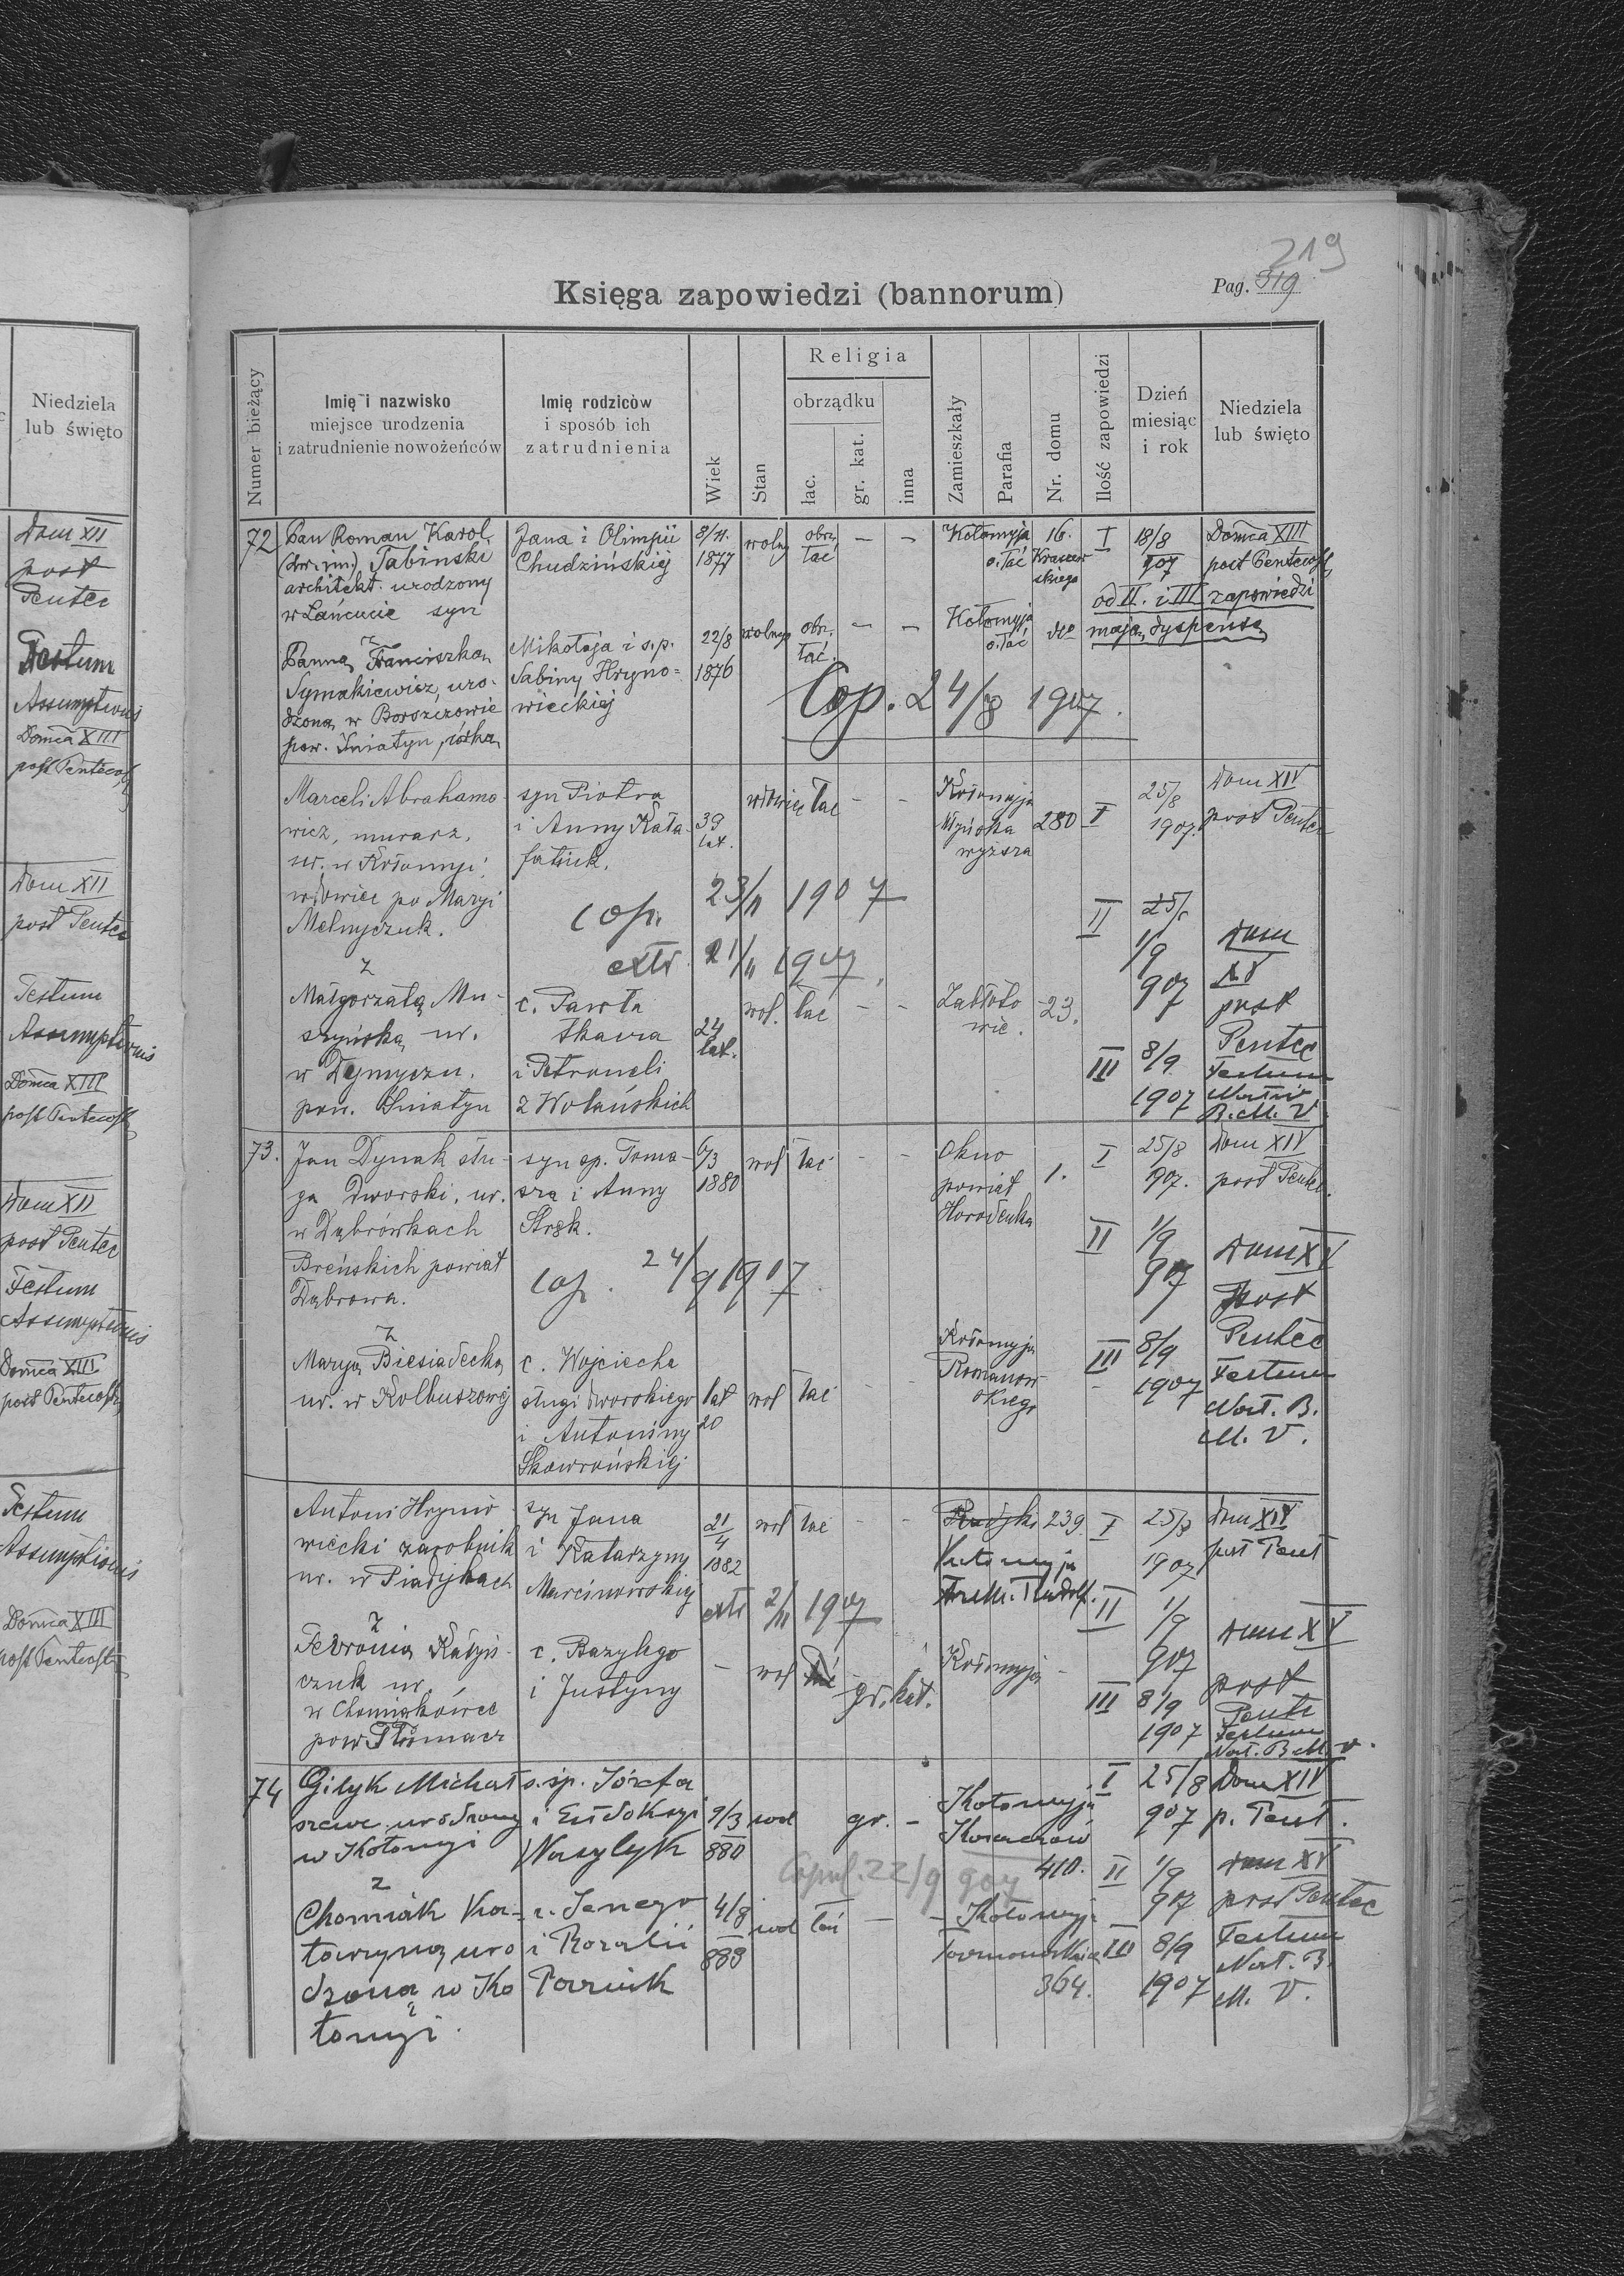 Niedziela
lub święto
Dom XII
post
Pentec
Festum
Assumptionis
Domca XIII
post Pentecost
Dom XII
post Pentec
Festum
Assumptionis
Domca XIII
post Pentecost
Dom XII
post Pentec
Festum
Assumptionis
Domca XIII
post Pentecost
Festum
Assumptionis
Domca XIII
post Pentecost
219
Księga zapowiedzi (bannorum)
Pag. 319
Numer bieżący
Imię i nazwisko
miejsce urodzenia
i zatrudnienie nowożeńców
Imię rodziców
i sposób ich
zatrudnienia
Wiek
Stan
Religia
obrządku
łac.
gr. kat.
inna
Zamieszkały
Parafia
Nr. domu
Ilość zapowiedzi
Dzień
miesiąc
i rok
Niedziela
lub święto
72 Pan Roman Karol Jana i Olimpii 8/11. wolny obrz. — — Kołomyja 16. I 18/8 Domca XIII
(dw. im.) Tabinski Chudzińskiej 1877 łać o. łać Kraszew 907 post Pentecost
architekt. urodzony skiego od II. i III zapowiedzi
w Łańcucie syn mają dyspensę
z
Panną Franciszką Mikołaja i s.p. 22/8 wolny obr. — — Kołomyja dto
Symakiewicz, uro- Sabiny Hryno= 1876 łać. o. łać
dzoną w Borszczowie wieckiej Cop. 24/8 1907.
pow. Śniatyn, córką
Marceli Abrahamo syn Piotra wdowiec łac — — Kołomyja 25/8 Dom XIV
wicz, murarz, i Anny Kała 39 Mzyńska 280 I 1907. post Pentec
ur. w Kołomyi; fatiuk. lat. wyższa
wdowiec po Maryi cop. 23/11 1907 II 25/
Melnyczuk. extr. 21/11 1907 1/9 Dom
z 907 XV
Małgorzatą Mu- c. Pawła wol. łac — — Zabłoto 23. post
szyńską ur. tkacza 24 wie. Pentec
w Dzmyczu. i Petroneli lat. III 8/9 Festum
pow. Śniatyn z Wolańskich 1907 Nativit B. M. V.
73. Jan Dynak słu- syn sp. Toma- 6/3 wol łac — — Okno 1. I 25/8 Dom XIV
ga Dworski, ur. sza i Anny 1880 powiat 907. post Pentec.
w Dąbrówkach Strsk. Horodenka II 1/9 Dom XV
Breńskich powiat cop. 24/9 1907 907 post
Dąbrowa. Pentec
z Kołomyja III 8/9 Festum
Maryą Biesiadecką c. Wojciecha lat wol łac — — Romanow 1907 Nat. B.
ur. w Kolbuszowej sługi dworskiego 20 skiego M. V.
i Antoniny
Skowrońskiej
Antoni Hrynio syn Jana 21/4 wol łac — — Piadyki 239. I 25/8 Dom XIV
wiecki zarobnik i Katarzyny 1882 Kołomyja 1907 post Pent
ur. w Piadykach Marcinowskiej extr 2/11 1907 II 1/9 Dom XV
z 907 post
Fevronią Kałyń- c. Bazylego — wol gr. kat. Kołomyja — III 8/9 Pente
czuk ur. i Justyny 1907 Festum
w Chomiakówce Nat. B M. V.
pow Tłómacz
74 Gilyk Michał s. śp. Józefa 9/3 wol gr. — Kołomyja I 25/8 Dom XIV
szewc urodzony i Eudokszi 880 Koraczów 907 p. Pent.
w Kołomyi Wasylyk Copul. 22/9 907 410. II 1/9 Dom XV
z 907 post Pentec
Chomiak Ka- c. Ignacego 4/8 wol łac — — Kołomyja III 8/9 Festum
tarzyną uro i Rozalii 888 364. 1907 Nat. B.
dzoną w Ko Paruik M. V.
łomyi.